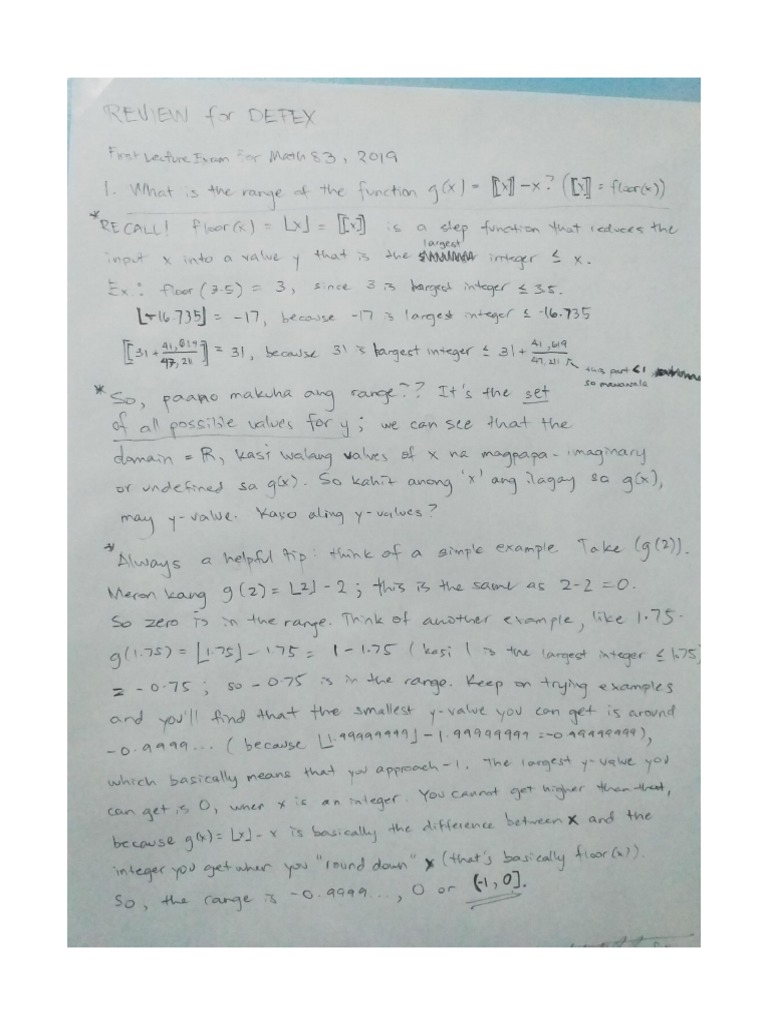 REVIEW for DEFEX
First Lecture Exam for Math 53, 2019
1. What is the range of the function g(x) = ⟦x⟧ - x? (⟦x⟧ = floor(x))
* RECALL! floor(x) = ⌊x⌋ = ⟦x⟧ is a step function that reduces the
largest
input x into a value y that is the integer ≤ x.
Ex: floor(3.5) = 3, since 3 is largest integer ≤ 3.5.
⌊-16.735⌋ = -17, because -17 is largest integer ≤ -16.735
⟦31 + 41,619/47,211⟧ = 31, because 31 is largest integer ≤ 31 + 41,619/47,211
this part < 1
so mawawala
* So, paano makuha ang range?? It's the set
of all possible values for y; we can see that the
domain = R, kasi walang values of x na magpapa-imaginary
or undefined sa g(x). So kahit anong 'x' ang ilagay sa g(x),
may y-value. Kaso aling y-values?
* Always a helpful tip: think of a simple example. Take (g(2)).
Meron kang g(2) = ⌊2⌋ - 2; this is the same as 2-2 = 0.
So zero is in the range. Think of another example, like 1.75.
g(1.75) = ⌊1.75⌋ - 1.75 = 1 - 1.75 (kasi 1 is the largest integer ≤ 1.75)
= -0.75; so -0.75 is in the range. Keep on trying examples
and you'll find that the smallest y-value you can get is around
-0.9999... (because ⌊1.99999999⌋ - 1.99999999 = -0.99999999),
which basically means that you approach -1. The largest y-value you
can get is 0, when x is an integer. You cannot get higher than that,
because g(x) = ⌊x⌋ - x is basically the difference between x and the
integer you get when you "round down" x (that's basically floor(x)).
So, the range is -0.9999..., 0 or (-1, 0].